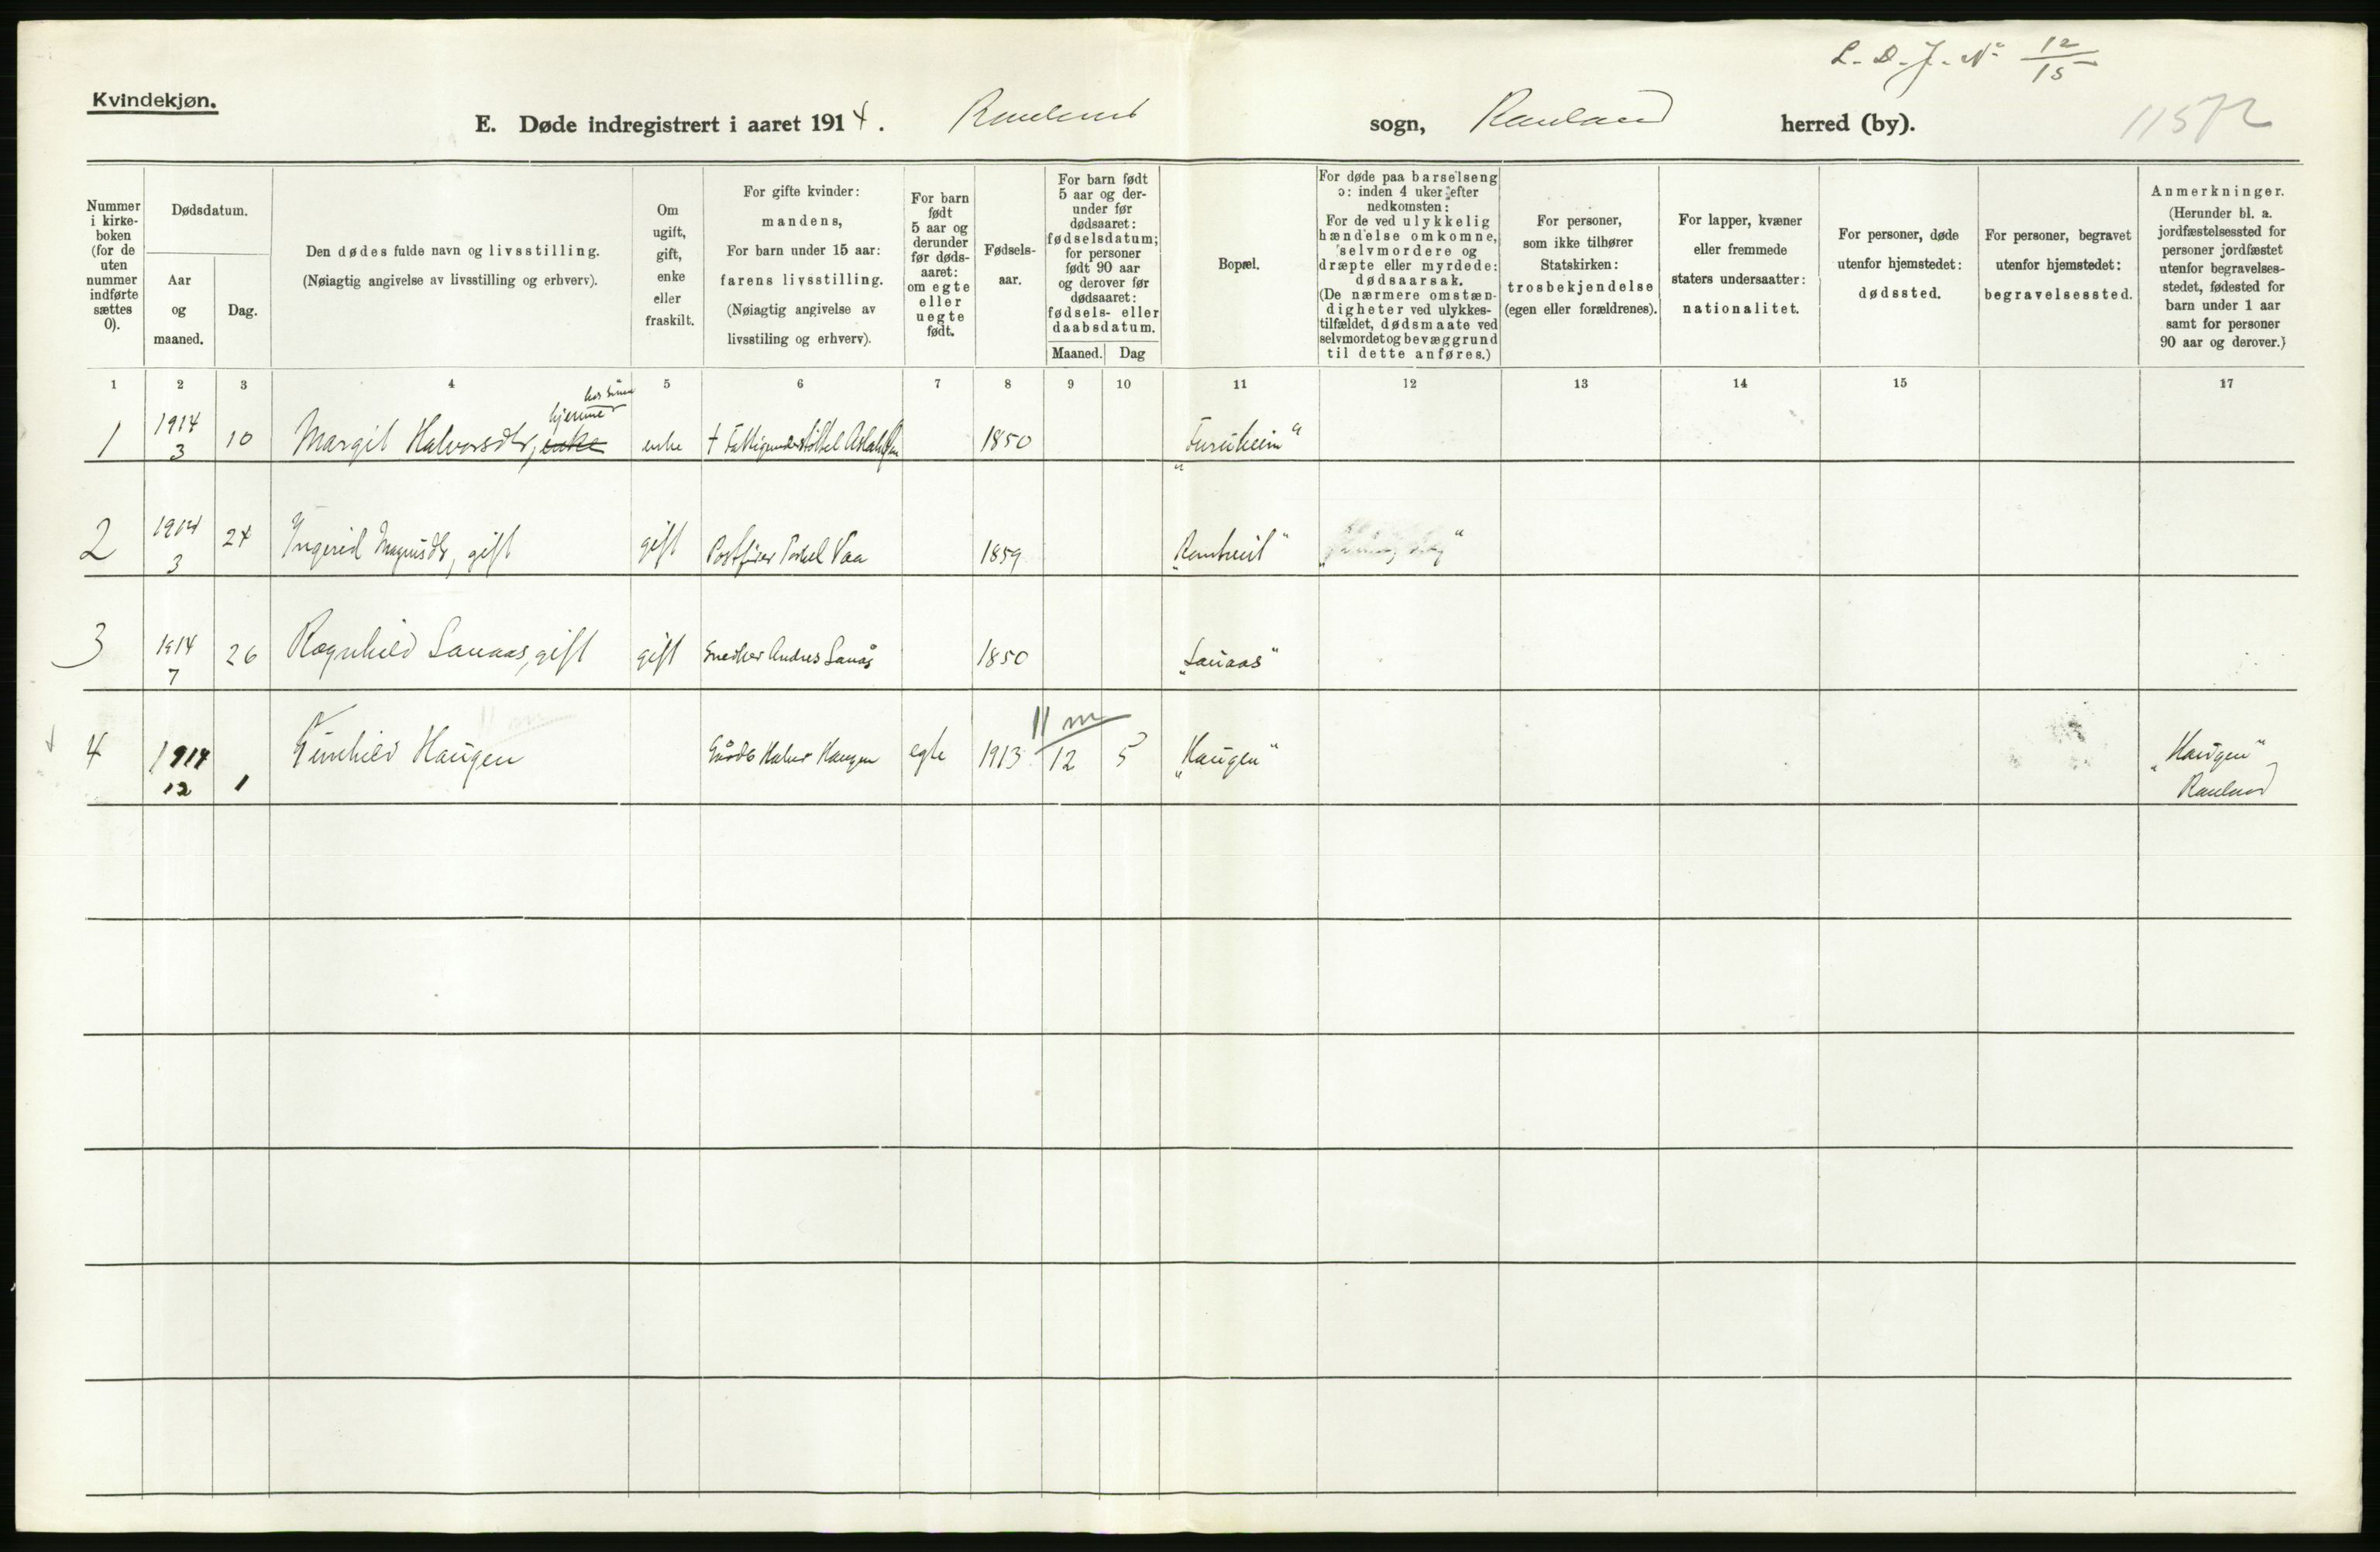 L. D. J. N° 12/15
Kvindekjøn.
E. Døde indregistrert i aaret 1914. Rauland sogn, Rauland herred (by). 115
Nummer i kirke-boken (for de uten nummer indførte sættes 0).
Dødsdatum.
Aar og maaned.
Dag.
Den dødes fulde navn og livsstilling.
(Nøiagtig angivelse av livsstilling og erhverv).
Om ugift, gift, enke eller fraskilt.
For gifte kvinder:
mandens,
For barn under 15 aar:
farens livsstilling.
(Nøiagtig angivelse av
livsstiling og erhverv).
For barn født 5 aar og derunder før døds-aaret: om egte eller uegte født.
Fødsels-aar.
For barn født
5 aar og der-
under før
dødsaaret:
fødselsdatum;
for personer
født 90 aar
og derover før
dødsaaret:
fødsels- eller
daabsdatum.
Maaned. Dag
Bopæl.
For døde paa barselseng
ɔ: inden 4 uker efter
nedkomsten:
For de ved ulykkelig
hændelse omkomne,
selvmordere og
dræpte eller myrdede:
dødsaarsak.
(De nærmere omstæn-
digheter ved ulykkes-
tilfældet, dødsmaate ved
selvmordet og bevæggrund
til dette anføres.)
For personer,
som ikke tilhører
Statskirken:
trosbekjendelse
(egen eller forældrenes).
For lapper, kvæner
eller fremmede
staters undersaatter:
nationalitet.
For personer, døde
utenfor hjemstedet:
dødssted.
For personer, begravet
utenfor hjemstedet:
begravelsessted.
Anmerkninger.
(Herunder bl. a.
jordfæstelsessted for
personer jordfæstet
utenfor begravelses-
stedet, fødested for
barn under 1 aar
samt for personer
90 aar og derover.)
1 2 3 4 5 6 7 8 9 10 11 12 13 14 15 17
1 1914 3 10 Margit Halvorsdtr, enke hjemme hos enke 1850 "Furuheim"
2 1914 3 24 Ingerid Magnisdtr, gift gift Vaa 1859
3 1914 7 26 Ragnhild Sanaas, gift gift Snedker Andres Sanås 1850 "Sanaas"
11 m
4 1914 12 1 Gunhild Haugen Gårdb Halvor Haugen egte 1913 12 5 "Haugen" "Haugen"
Rauland